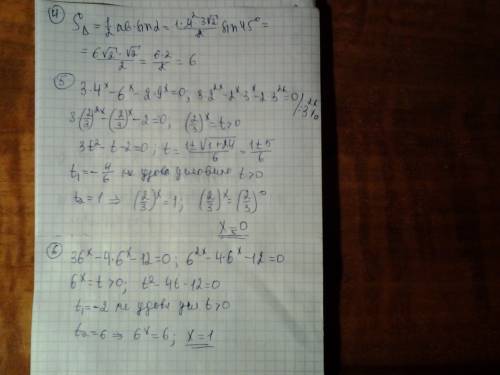 ④ S△ = 1/2 ab·sin α = 1·4·3√2/2 sin 45° =
= 6√2·√2/2 = 6·2/2 = 6
⑤ 3·4^x − 6^x − 2·9^x = 0, 3·2^2x − 2^x·3^x − 2·3^2x = 0 /:3^2x ≠ 0
3(2/3)^2x − (2/3)^x − 2 = 0; (2/3)^x = t > 0
3t² − t − 2 = 0; t = 1±√1+24/6 = 1±5/6
t₁ = −4/6 не удовл условию t > 0
t₂ = 1 ⇒ (2/3)^x = 1; (2/3)^x = (2/3)^0
x = 0
⑥ 36^x − 4·6^x − 12 = 0; 6^2x − 4·6^x − 12 = 0
6^x = t > 0; t² − 4t − 12 = 0
t₁ = −2 не удовл усл t > 0
t₂ = 6 ⇒ 6^x = 6; x = 1